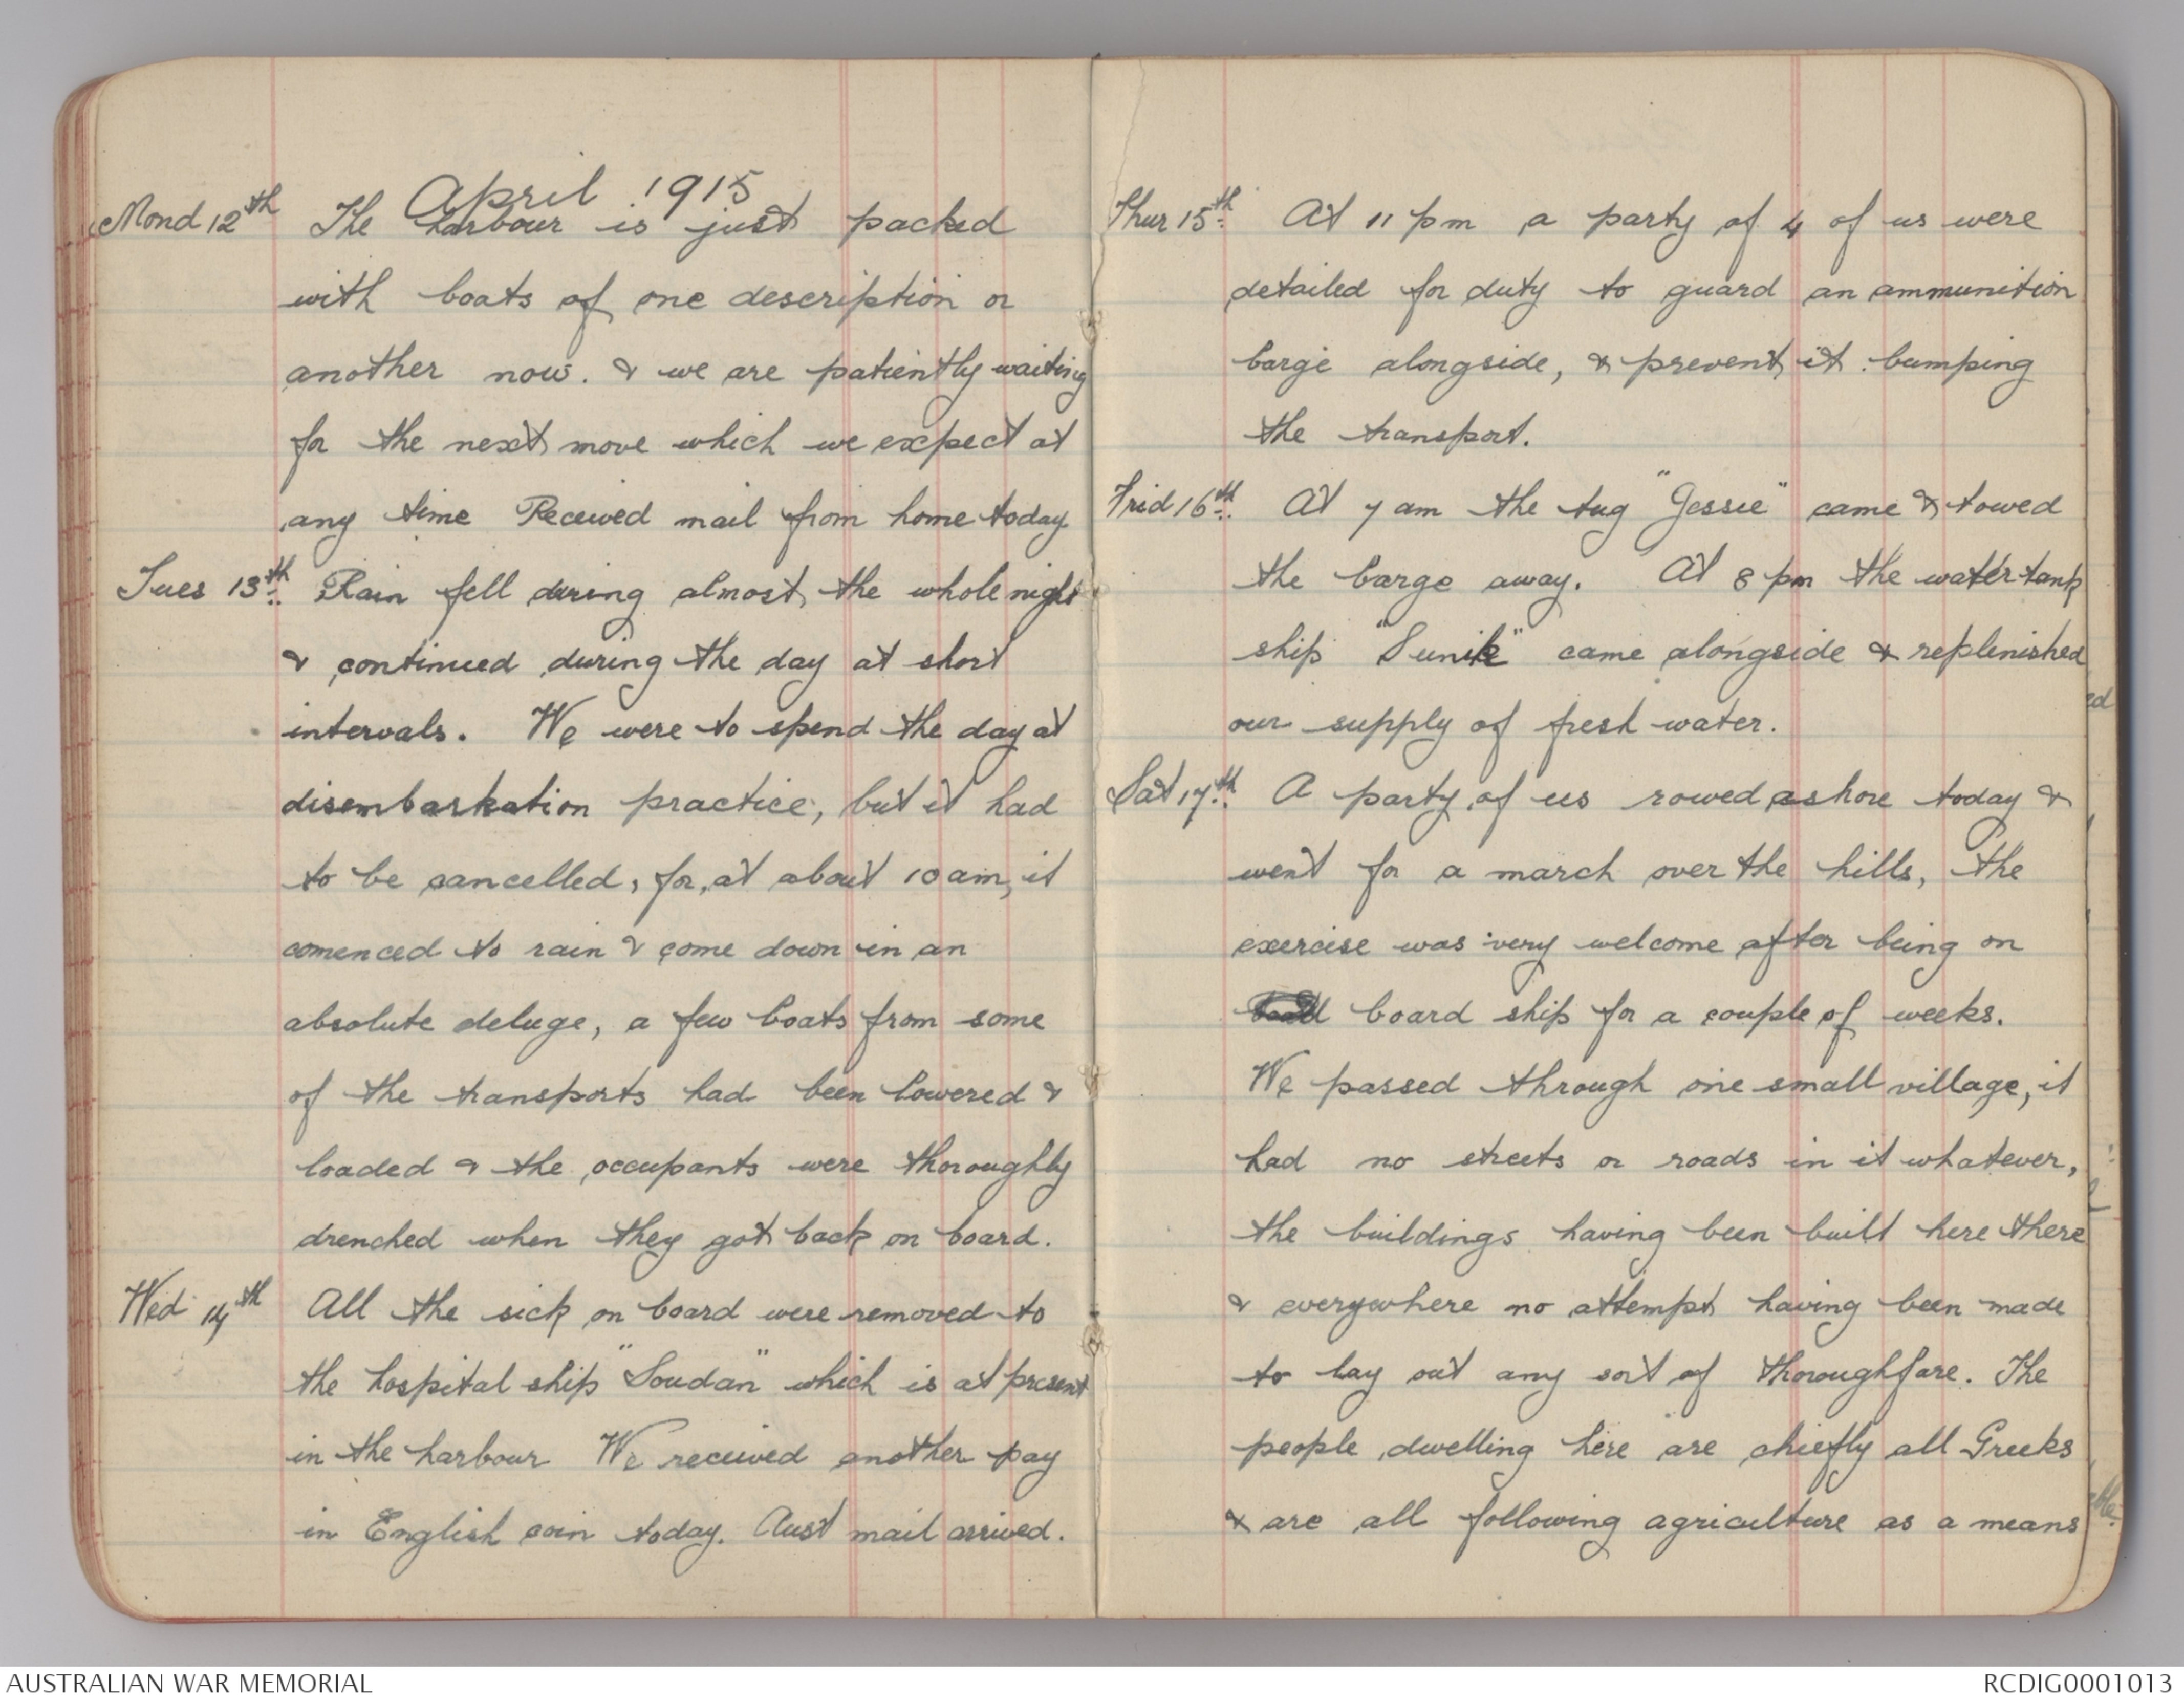 April 1915
Mond 12th The harbour is just packed
with boats of one description or
another now. & we are patiently waiting
for the next move which we expect at
any time Received mail from home today
Tues 13th. Rain fell during almost the whole night
& continued during the day at short
intervals. We were to spend the day at
disembarkation practice, but it had
to be cancelled, for, at about 10 am, it
comenced to rain & come down in an
absolute deluge, a few boats from some
of the transports had been lowered &
loaded & the occupants were thoroughly
drenched when they got back on board.
Wed 14th All the sick on board were removed to
the hospital ship "Soudan" which is at present
in the harbour We received another pay
in English coin today. Aust mail arrived.
Thur 15th. At 11 pm a party of 4 of us were
detailed for duty to guard an ammunition
barge alongside, & prevent it bumping
the transport.
Frid 16th. At 7 am the tug "Jessie" came & towed
the barge away. At 8 pm the water tank
ship "Sunik" came alongside & replenished
our supply of fresh water.
Sat 17th. A party of us rowed ashore today &
went for a march over the hills, the
exercise was very welcome after being on
board ship for a couple of weeks.
We passed through one small village, it
had no streets or roads in it whatever,
the buildings having been built here there
& everywhere no attempt having been made
to lay out any sort of thoroughfare. The
people dwelling here are chiefly all Greeks
& are all following agriculture as a means
AUSTRALIAN WAR MEMORIAL
RCDIG0001013